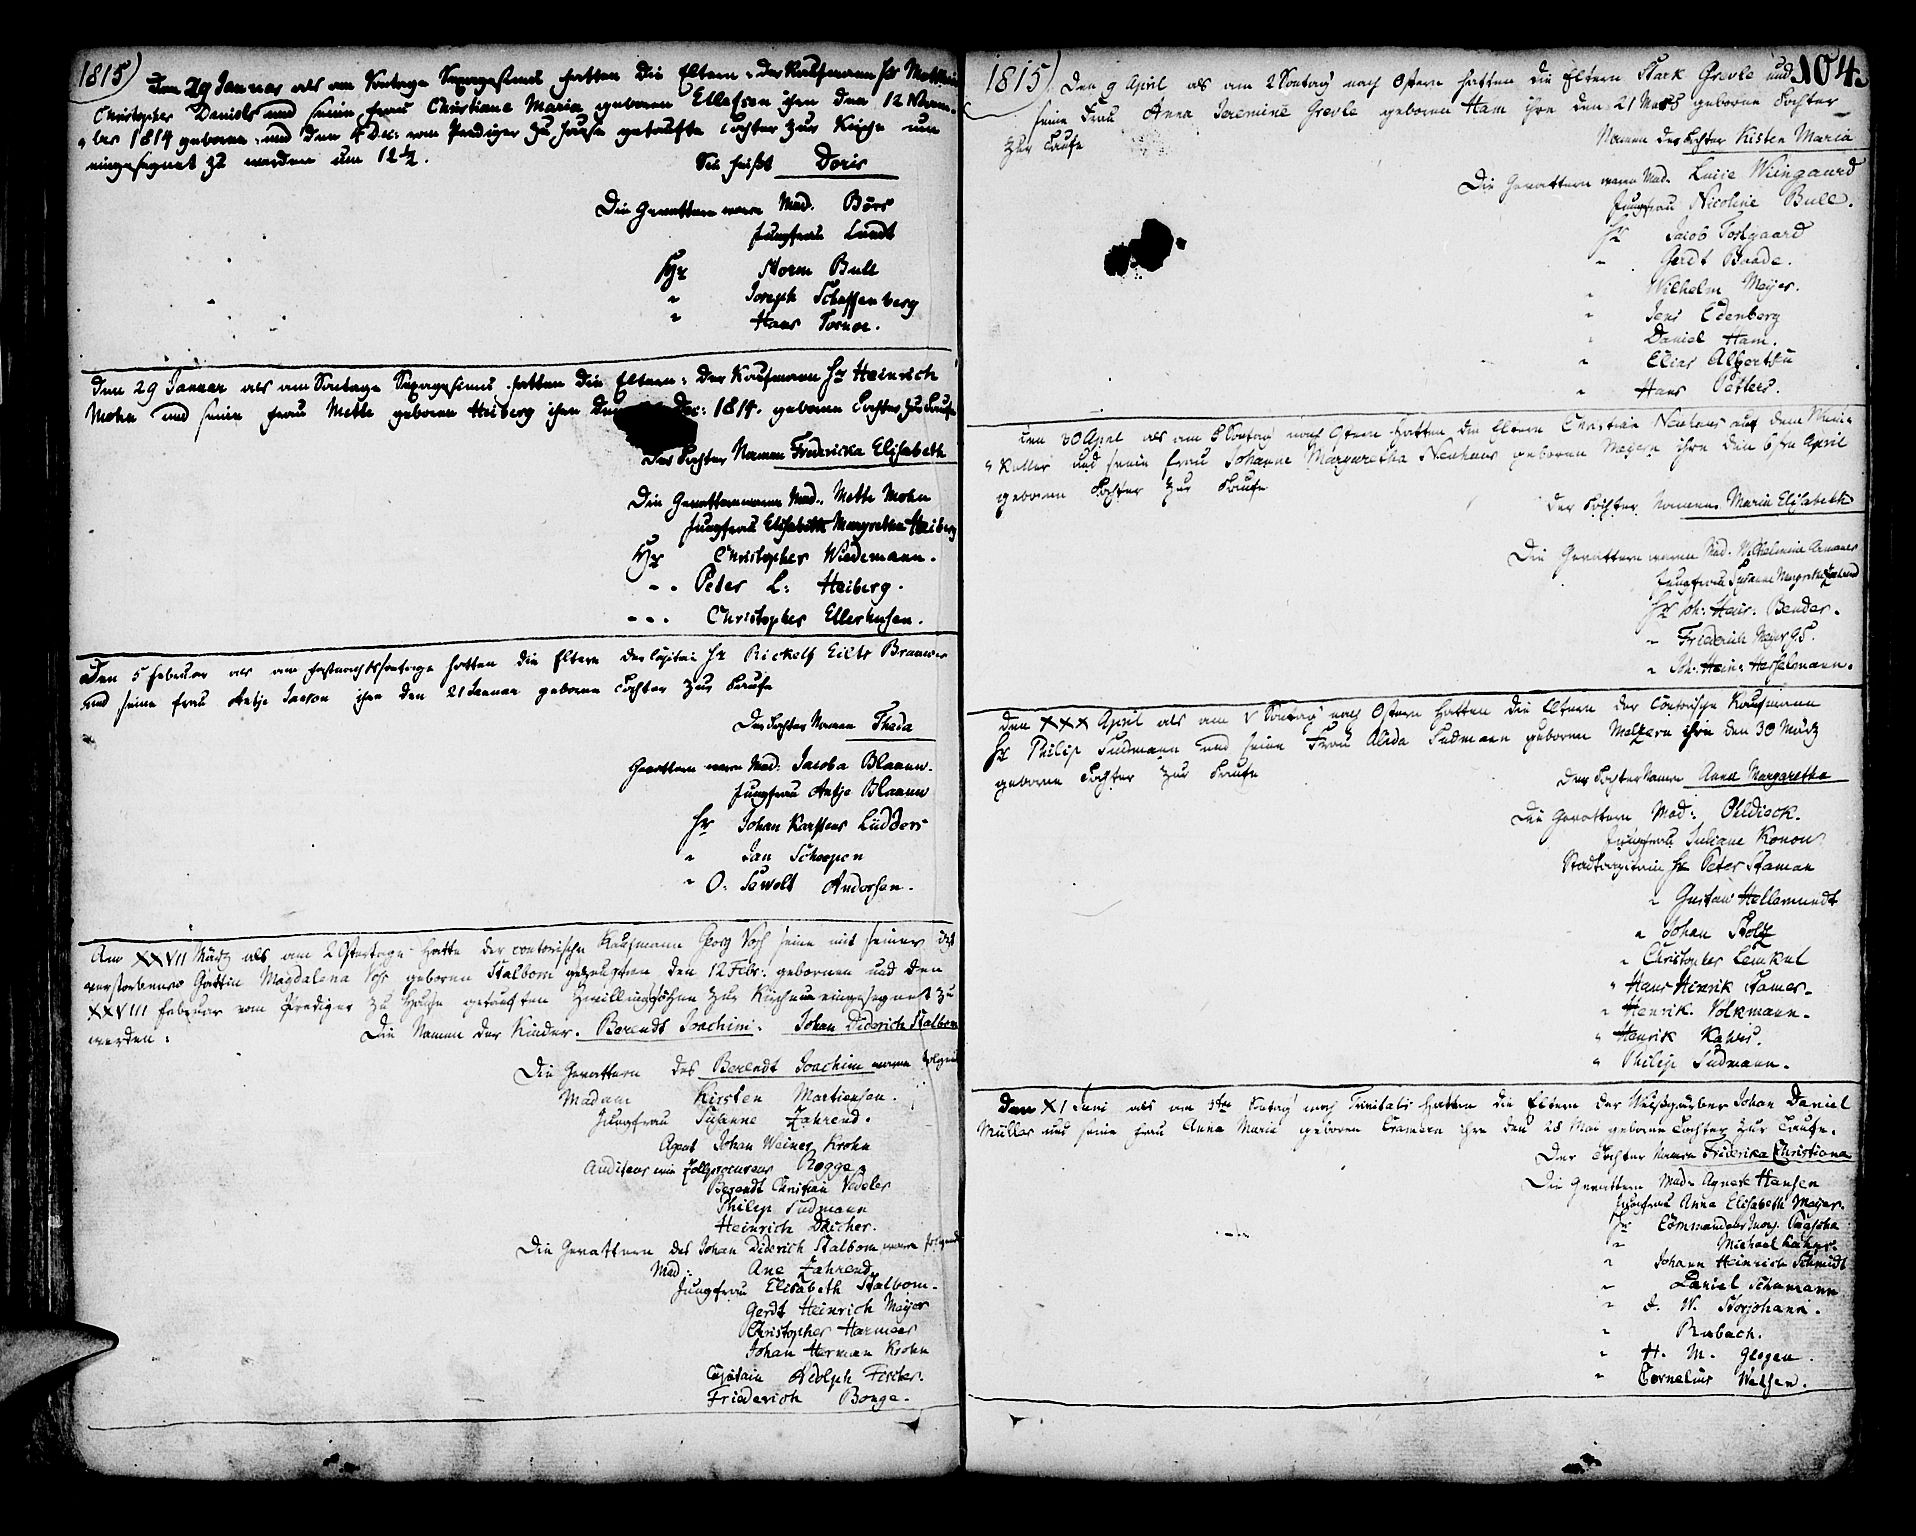 1815) Den 29 Januar als am Sontage Sexagesimä hatten die Eltern: der Kaufmann Hr
Christopher Daniels und seine Frau Christiane Maria geboren Ellefsen ihre den 12 Novem-
ber 1814 geborne, und den 4 Dec: vom Prediger zu Hause getaufte Tochter zur Kirche um
eingesegnet zu werden um 12½.
Sie heißt Doris
Die Gevattern waren Mad. Börs
Jungfrau Lundt
Hr Storm Bull
" Joseph Schaffenberg
" Hans Tornoe.
Den 29 Januar als am Sontage Sexagesimä hatten die Eltern: der Kaufmann Hr Heinrich
Mohn und seine Frau Mette geboren Heiberg ihre den Dec: 1814. geborne Tochter zur Taufe
Der Tochter Namen Fredericka Elisabeth
Die Gevattern waren Mad. Mette Mohn
Jungfrau Elisabeth Margretha Heiberg
Hr Christopher Wiedemann.
" Peter L: Heiberg.
" Christopher Ellerhusen.
Den 5 Februar als am Fastnachtssontage hatten die Eltern der Capitain Hr Rickelf Eilts Brauwer
und seine Frau Antje Janson ihre den 21 Januar geborne Tochter zur Taufe
Der Tochter Namen Theda
Gevattern waren Mad: Jacoba Blaauw.
Jungfrau Antje Blaauw
Hr Johan Karstens Lüdders
" Jan Schoopen
" O. Sewolt Andersen.
Am XXVII März als am 2 Ostertage hatte der contorische Kaufmann Georg Voss seine mit seiner
verstorbenen Gattin Magdalena Voss geboren Stalbom gezeugten den 12 Febr: gebornen und den
XXVIII Februar vom Prediger zu Hause getauften Zwillingssöhne zur Kirche um eingesegnet zu
werden:
Die Namen der Kinder. Berendt Joachim. Johan Diderich Stalbom
Die Gevattern des Berendt Joachim waren folgend
Madam Kirsten Martiensen.
Jungfrau Susanne Zahrend.
Agent Johan Weiner Krohn
Auditeur und Zollprocureur Bogge
Berendt Christian Vedeler
Philip Sudmann
Heinrich Däscher.
Die Gevattern des Johan Diderich Stalbom waren folgende
Mad: Ane Zahrend
Jungfrau Elisabeth Stalbom.
Gerdt Heinrich Meyer
Christopher Harmens
Johan Herman Krohn
Capitain Adolph Fischer.
Friederich Bonge.
1815) Den 9 April als am 2 Sontag nach Ostern hatten die Eltern Stark Grevle und 104.
seine Frau Anna Jeremine Grevle geboren Ham ihre den 21 März geborne Tochter
zur Taufe
Namen der Tochter Kisten Maria
Die Gevattern waren Mad. Lucie Wiingaard
Jungfrau Nicoline Bull.
Hr Jacob Fostgaard
" Gerdt Baade.
Wilhelm Meyer.
" Jens Edenberg
Daniel Ham.
" Elias
" Hans Pətters.
Den 30 April als am 5 Sontag nach Ostern hatten die Eltern Christian Neuhaus auf dem Wein-
keller und seine Frau Johanne Margaretha Neuhaus geboren Meyern ihre den 6ten April
geborne Tochter zur Taufe
der Tochter Namen. Maria Elisabeth
Die Gevattern waren Mad. Wilhelmine
Jungfrau Susanne Margretha Zahrend
Hr Joh: Heinr: Bender.
" Friederich Meyer
" Joh: Hein: Hesselmann.
Den XXX April als am V Sontag nach Ostern hatten die Eltern der Contorische Kaufmann
Hr Philip Sudmann und seine Frau Alida Sudmann geboren Meltzern ihre den 30 März
geborne Tochter zur Taufe
Der Tochter Namen Anna Margaretha
Die Gevattern Mad: Ohldieck.
Jungfrau Juliane Konow
Stadtcapitain Hr Peter Staman
" Gustav Hellemundt
" Johan Stolz
" Christopher Lemkul
" Hans Henrik Stamer.
" Henrik Volkmann.
" Henrik Kahrs.
" Philip Sudmann.
Den XI Juni als am 3ten Sontag nach Trinitatis hatten die Eltern der Weißgärber Johan Daniel
Müller und seine Frau Anna Maria geboren ihre den 28 Mai geborne Tochter zur Taufe.
Der Tochter Namen Friderika Christiana
Die Gevattern Mad. Agnete Hansen
Jungfrau Anna Elisabeth Meyer.
Hr Commandeur
" Michael Kahrs.
" Johann Heinrich Schmidt
" Daniel Schumann
" J. W. Storjohann.
" Rubach.
" H. M. Glogen.
" Cornelius Welsen.